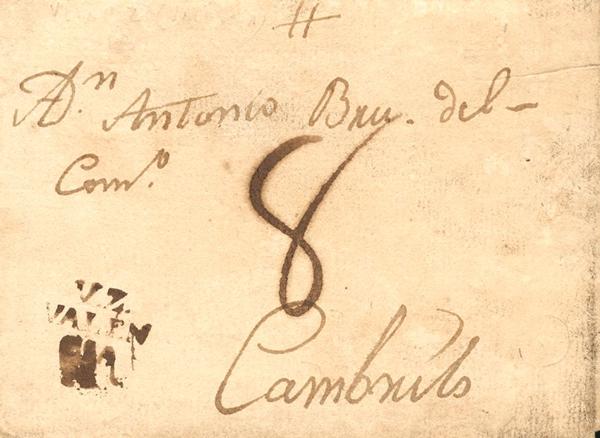 A Dn. Antonio Bru. del-
Como.
8
V.Z.
VALEN
Cambrils